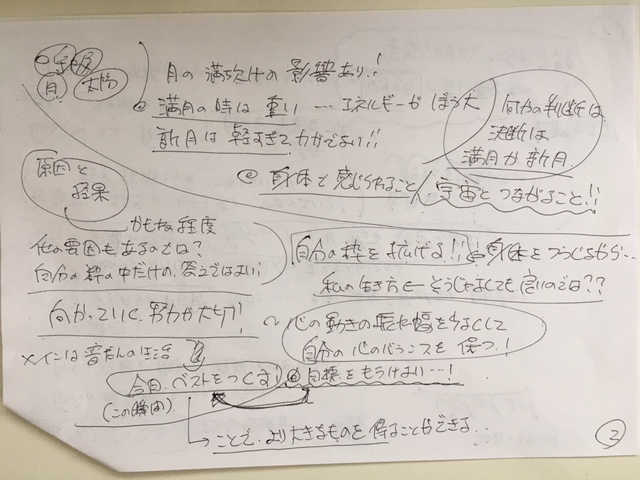 月 太陽
月の満欠けの影響あり!!
満月の時は重い … エネルギーがぼう大
新月は軽すぎて力がでない!!
何かの判断は、
決断は
満月か新月
身体で感じられること/宇宙とつながること!!
原因と
結果
かもね程度
他の要因もあるのでは?
自分の枠の中だけの、答えではない
自分の枠を拡げる!! 身体をつうじながら…
私の生き方 ← そうじゃなくても良いのでは??
向かっていく、努力が大切!
〜心の動きの振れ幅を少なくして
自分の心のバランスを保つ!
メインは普だんの生活
今日、ベストをつくす! 目標をもうけない…!
(この瞬間)
→ことで、より大きなものを得ることができる..
②